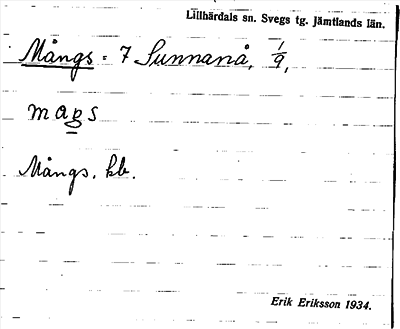 Lillhärdals sn. Svegs tg. Jämtlands län.
Mångs = 7 Sunnanå, 1/9,
Mångs. kb.
Erik Eriksson 1934.